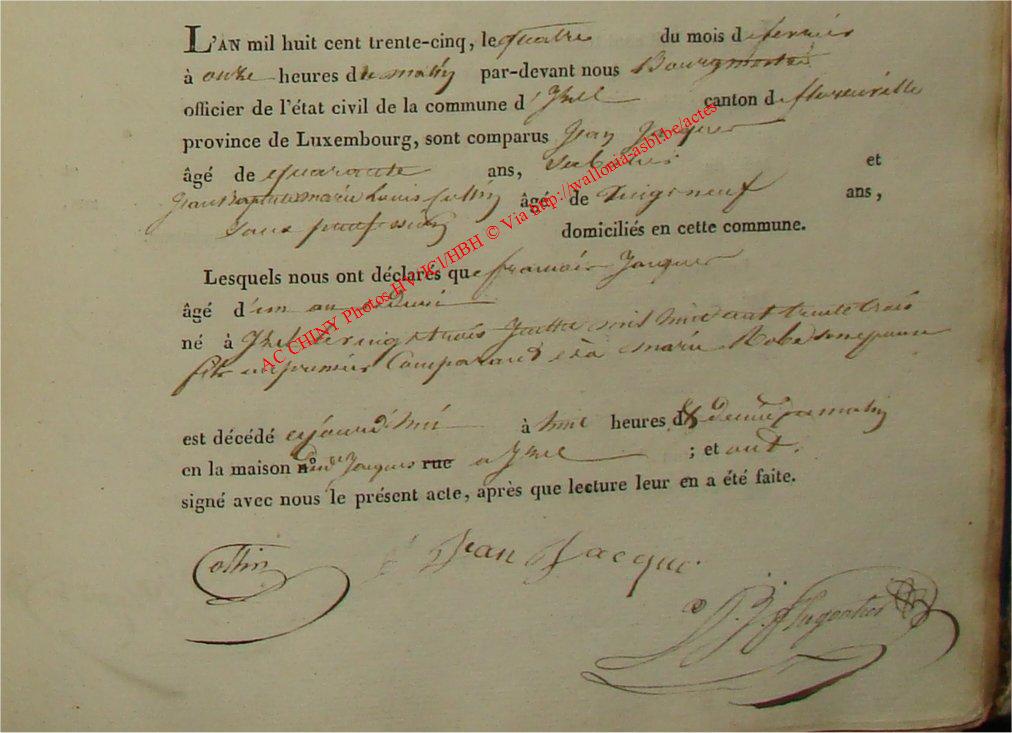 L'AN mil huit cent trente-cinq, le quatre du mois de fevrier
à onze heures du matin par-devant nous Bourgmestre
officier de l'état civil de la commune d'Izel canton de florenville
province de Luxembourg, sont comparus Jean Jacques
âgé de quarante ans, et
Jean Baptiste marie Louis Collin âgé de vingt neuf ans,
Sans profession domiciliés en cette commune.
Lesquels nous ont déclarés que francois Jacques
âgé d'un an et demi
né à Izel le vingt trois Juillet mil huit cent trente trois
fils du premier Comparant et à marie Robe
est décédé aujourd'hui à heures & demie du matin
en la maison n° dudt Jacques rue a Izel ; et ont
signé avec nous le présent acte, après que lecture leur en a été faite.
Collin Jean Jacque
AC CHINY Photos HV-JCl/HBH © Via http://wallonia-asbl.be/actes